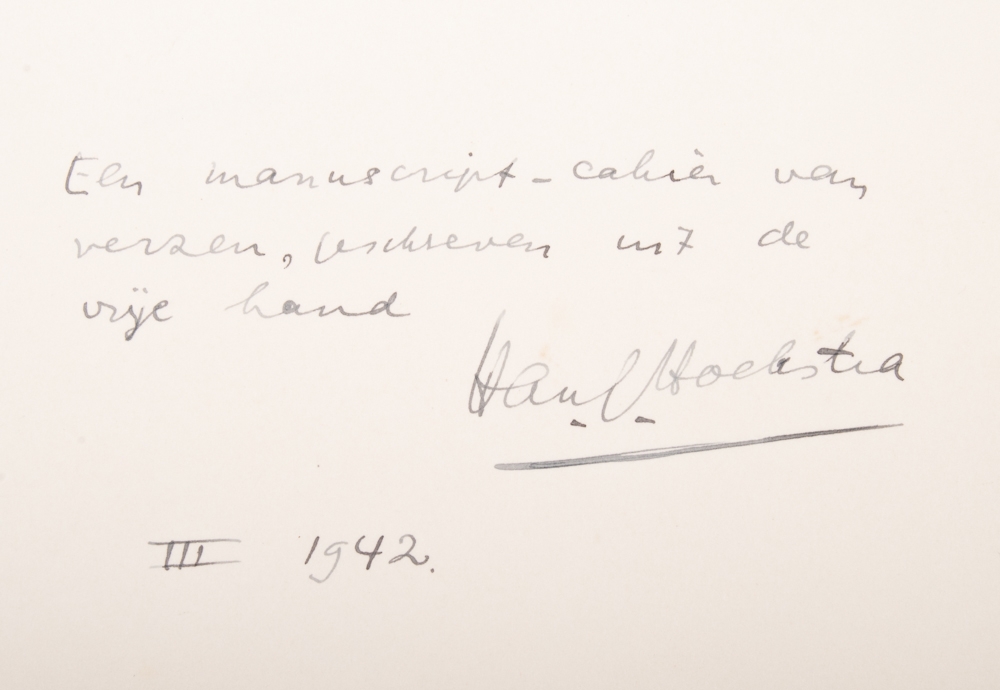 Een manuscript-cahier van
verzen, geschreven uit de
vrije hand
Han G. Hoekstra
III 1942.